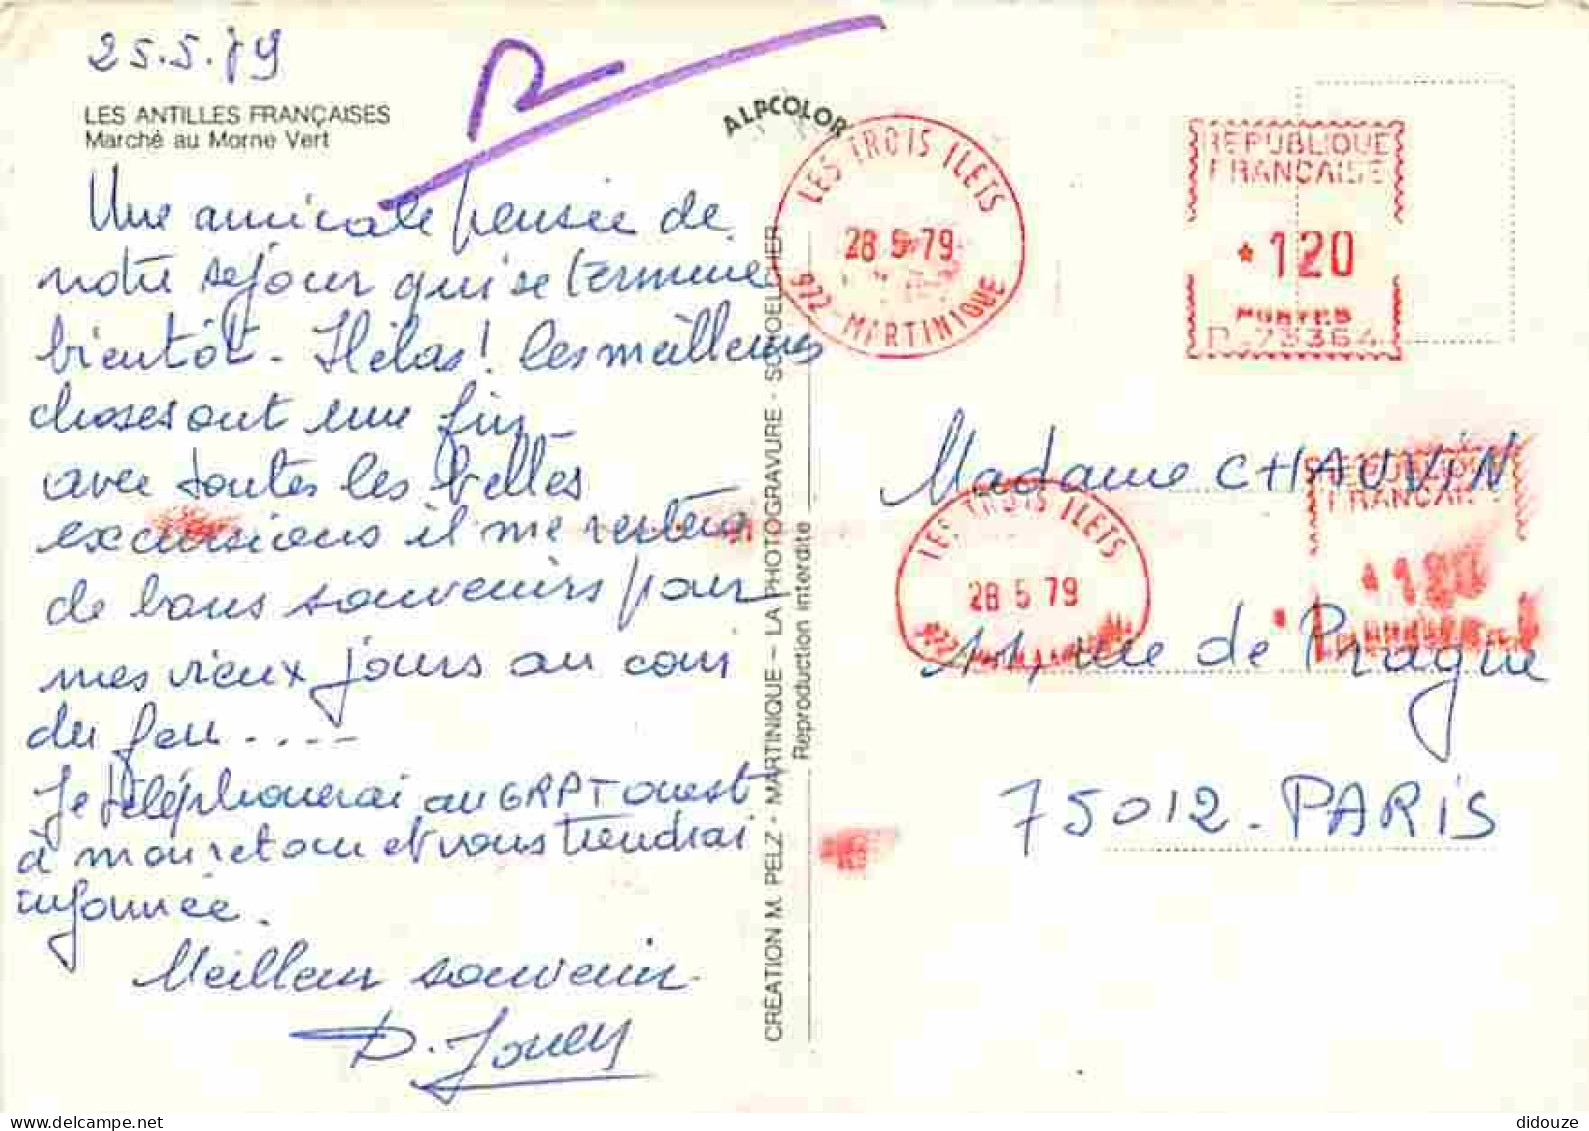 25.5.79
LES ANTILLES FRANÇAISES
Marché au Morne Vert
Une amicale pensée de
notre séjour qui se termine
bientôt - Hélas! les meilleures
choses ont une fin
avec toutes les belles
excursions il me restera
de bons souvenirs pour
mes vieux jours au coin
du feu ....
Je téléphonerai au GRPT Ouest
à mon retour et vous tiendrai
informée.
Meilleur souvenir
D.
ALPCOLOR
CRÉATION M. PELZ - MARTINIQUE - LA PHOTOGRAVURE - SCHOELCHER
Reproduction interdite
LES TROIS ILETS
28 5 79
972 - MARTINIQUE
REPUBLIQUE
FRANCAISE
120
POSTES
Madame CHAUVIN
REPUBLIQUE
FRANCAISE
LES TROIS ILETS
28 5 79
972
120
11, rue de Prague
75012 - PARIS
didouze